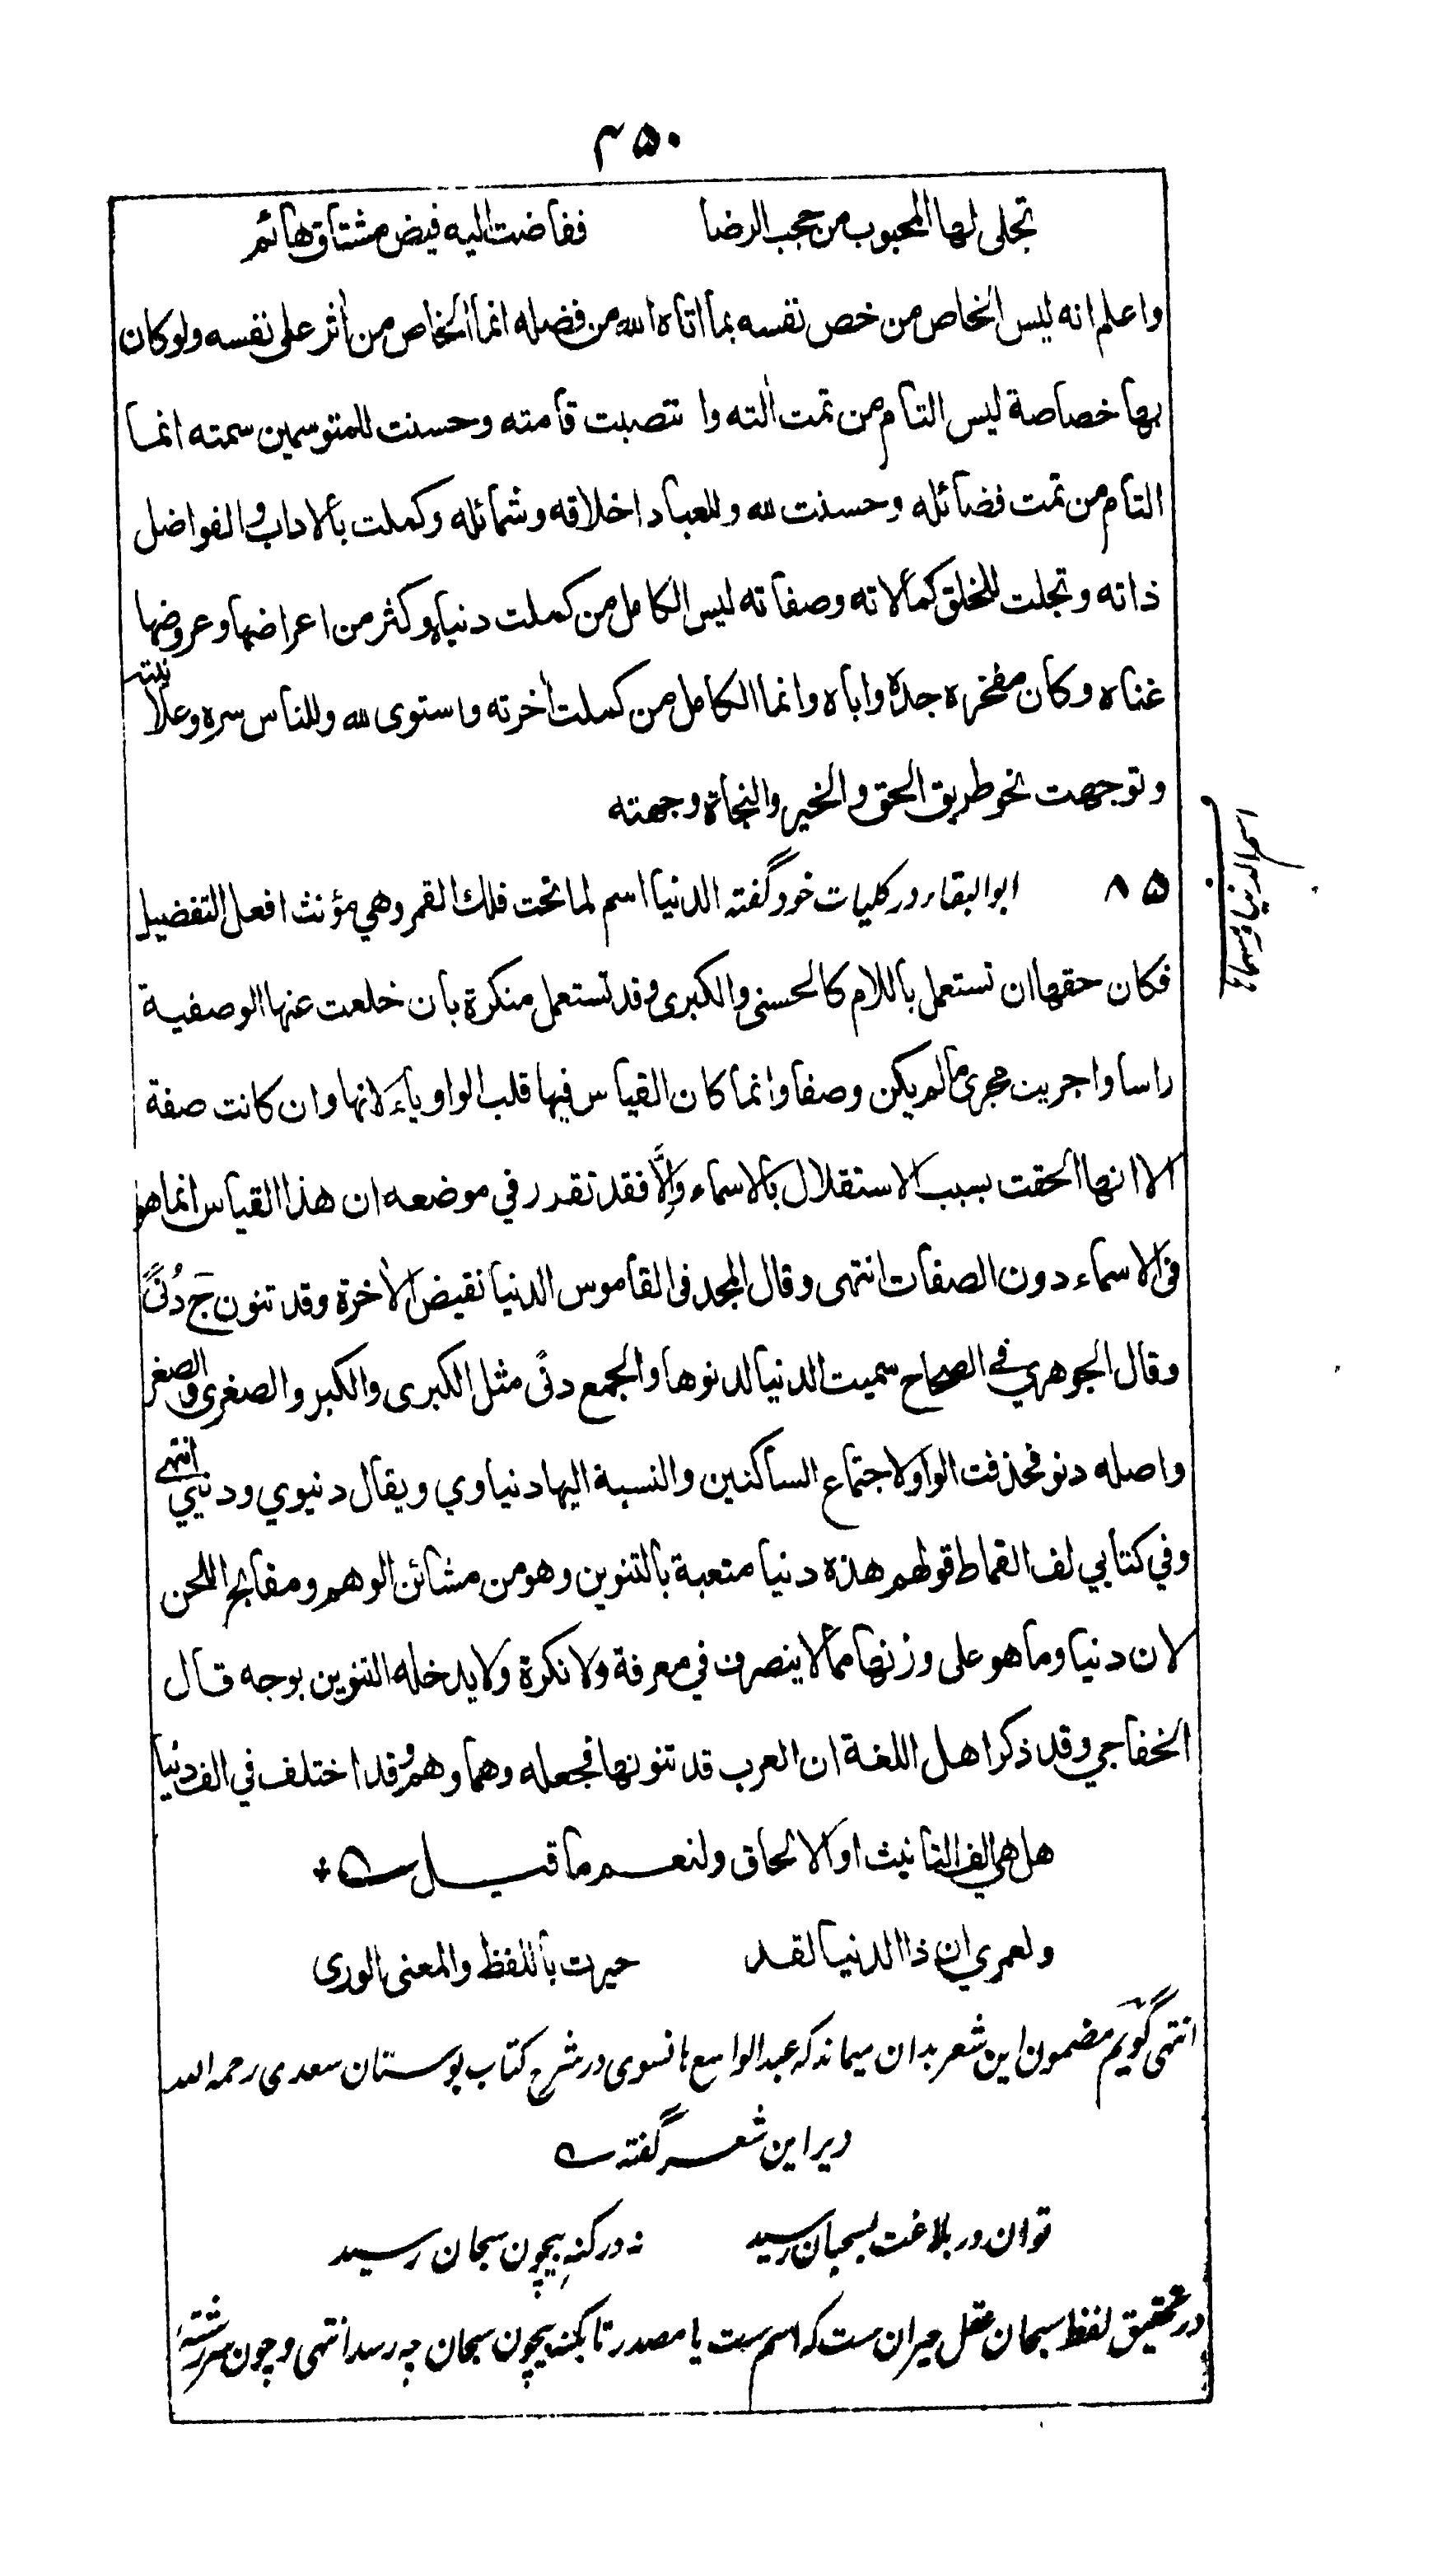 ۴۵۰
تجلى لها المحبوب من حجب الرضا ففاضت اليه فيض مشتاق هائم
واعلم انه ليس الخاص من خص نفسه بما اتاه الله من فضله انما الخاص من أثر على نفسه ولو كان
بها خصاصة ليس التام من تمت ألته وا نتصبت قامته وحسنت للمتوسمين سمته انما
التام من تمت فضائله وحسنت لله وللعباد اخلاقه وشمائله وكملت بالاداب والفواضل
ذاته وتجلت للخلق كمالاته وصفاته ليس الكامل من كملت دنياه وكثر من اعراضها وعروضها
غناه وكان مفخره جده واباه وانما الكامل من كملت أخرته واستوى لله وللناس سره وعلانيته
وتوجهت نحو طريق الحق والخير والنجاة وجهته
۸۵ ابو البقاء در كليات خود گفته الدنيا اسم لما تحت فلك القمر وهي مؤنث افعل التفضيل
اسم الدنيا ومسماه
فكان حقها ان تستعمل باللام كالحسنى والكبرى وقد تستعمل منكرة بان خلعت عنها الوصفية
راسا واجريت مجرى ما لم يكن وصفا وانما كان القياس فيها قلب الواو ياء لانها وان كانت صفة
الا انها الحقت بسبب الاستقلال بالاسماء وإلّا فقد تقرر في موضعه ان هذا القياس انما هو
فى الاسماء دون الصفات انتهى وقال المجد فى القاموس الدنيا نقيض الأخرة وقد تنون ج دُنًى
وقال الجوهري في الصحاح سميت الدنيا لدنوها والجمع دنًى مثل الكبرى والكبر والصغرى والصغر
واصله دنو فحذفت الواو لاجتماع الساكنين والنسبة اليها دنياوي ويقال دنيوي ودنيي انتهى
وفي كتابي لف القماط قولهم هذه دنيا متعبة بالتنوين وهو من مشائن الوهم ومقابح اللحن
لان دنيا وما هو على وزنها مما لا ينصرف في معرفة ولا نكرة ولا يدخله التنوين بوجه قال
الخفاجي وقد ذكر اهل اللغة ان العرب قد تنونها فجعله وهما وهم وقد اختلف في الف دنيا
هل هي الف التانيث او الالحاق ولنعم ما قيل
ولعمري ان ذا الدنيا لقد حيرت باللفظ والمعنى الورى
انتهى گويم مضمون اين شعر بدان ميماند كه عبد الواسع هانسوى در شرح كتاب بوستان سعدى رحمه الله
دیر اين شعر گفته
توان در بلاغت بسحبان رسيد نه در كنهِ بيچون سبحان رسيد
در تحقيق لفظ سبحان عقل حيران ست كه اسم ست يا مصدر تا بكنه بيچون سبحان چه رسد انتهى و چون سررشتهٔ